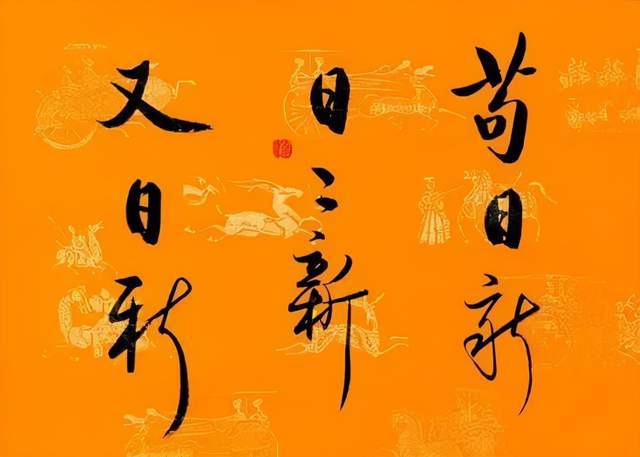 苟日新
日〻新
又日新